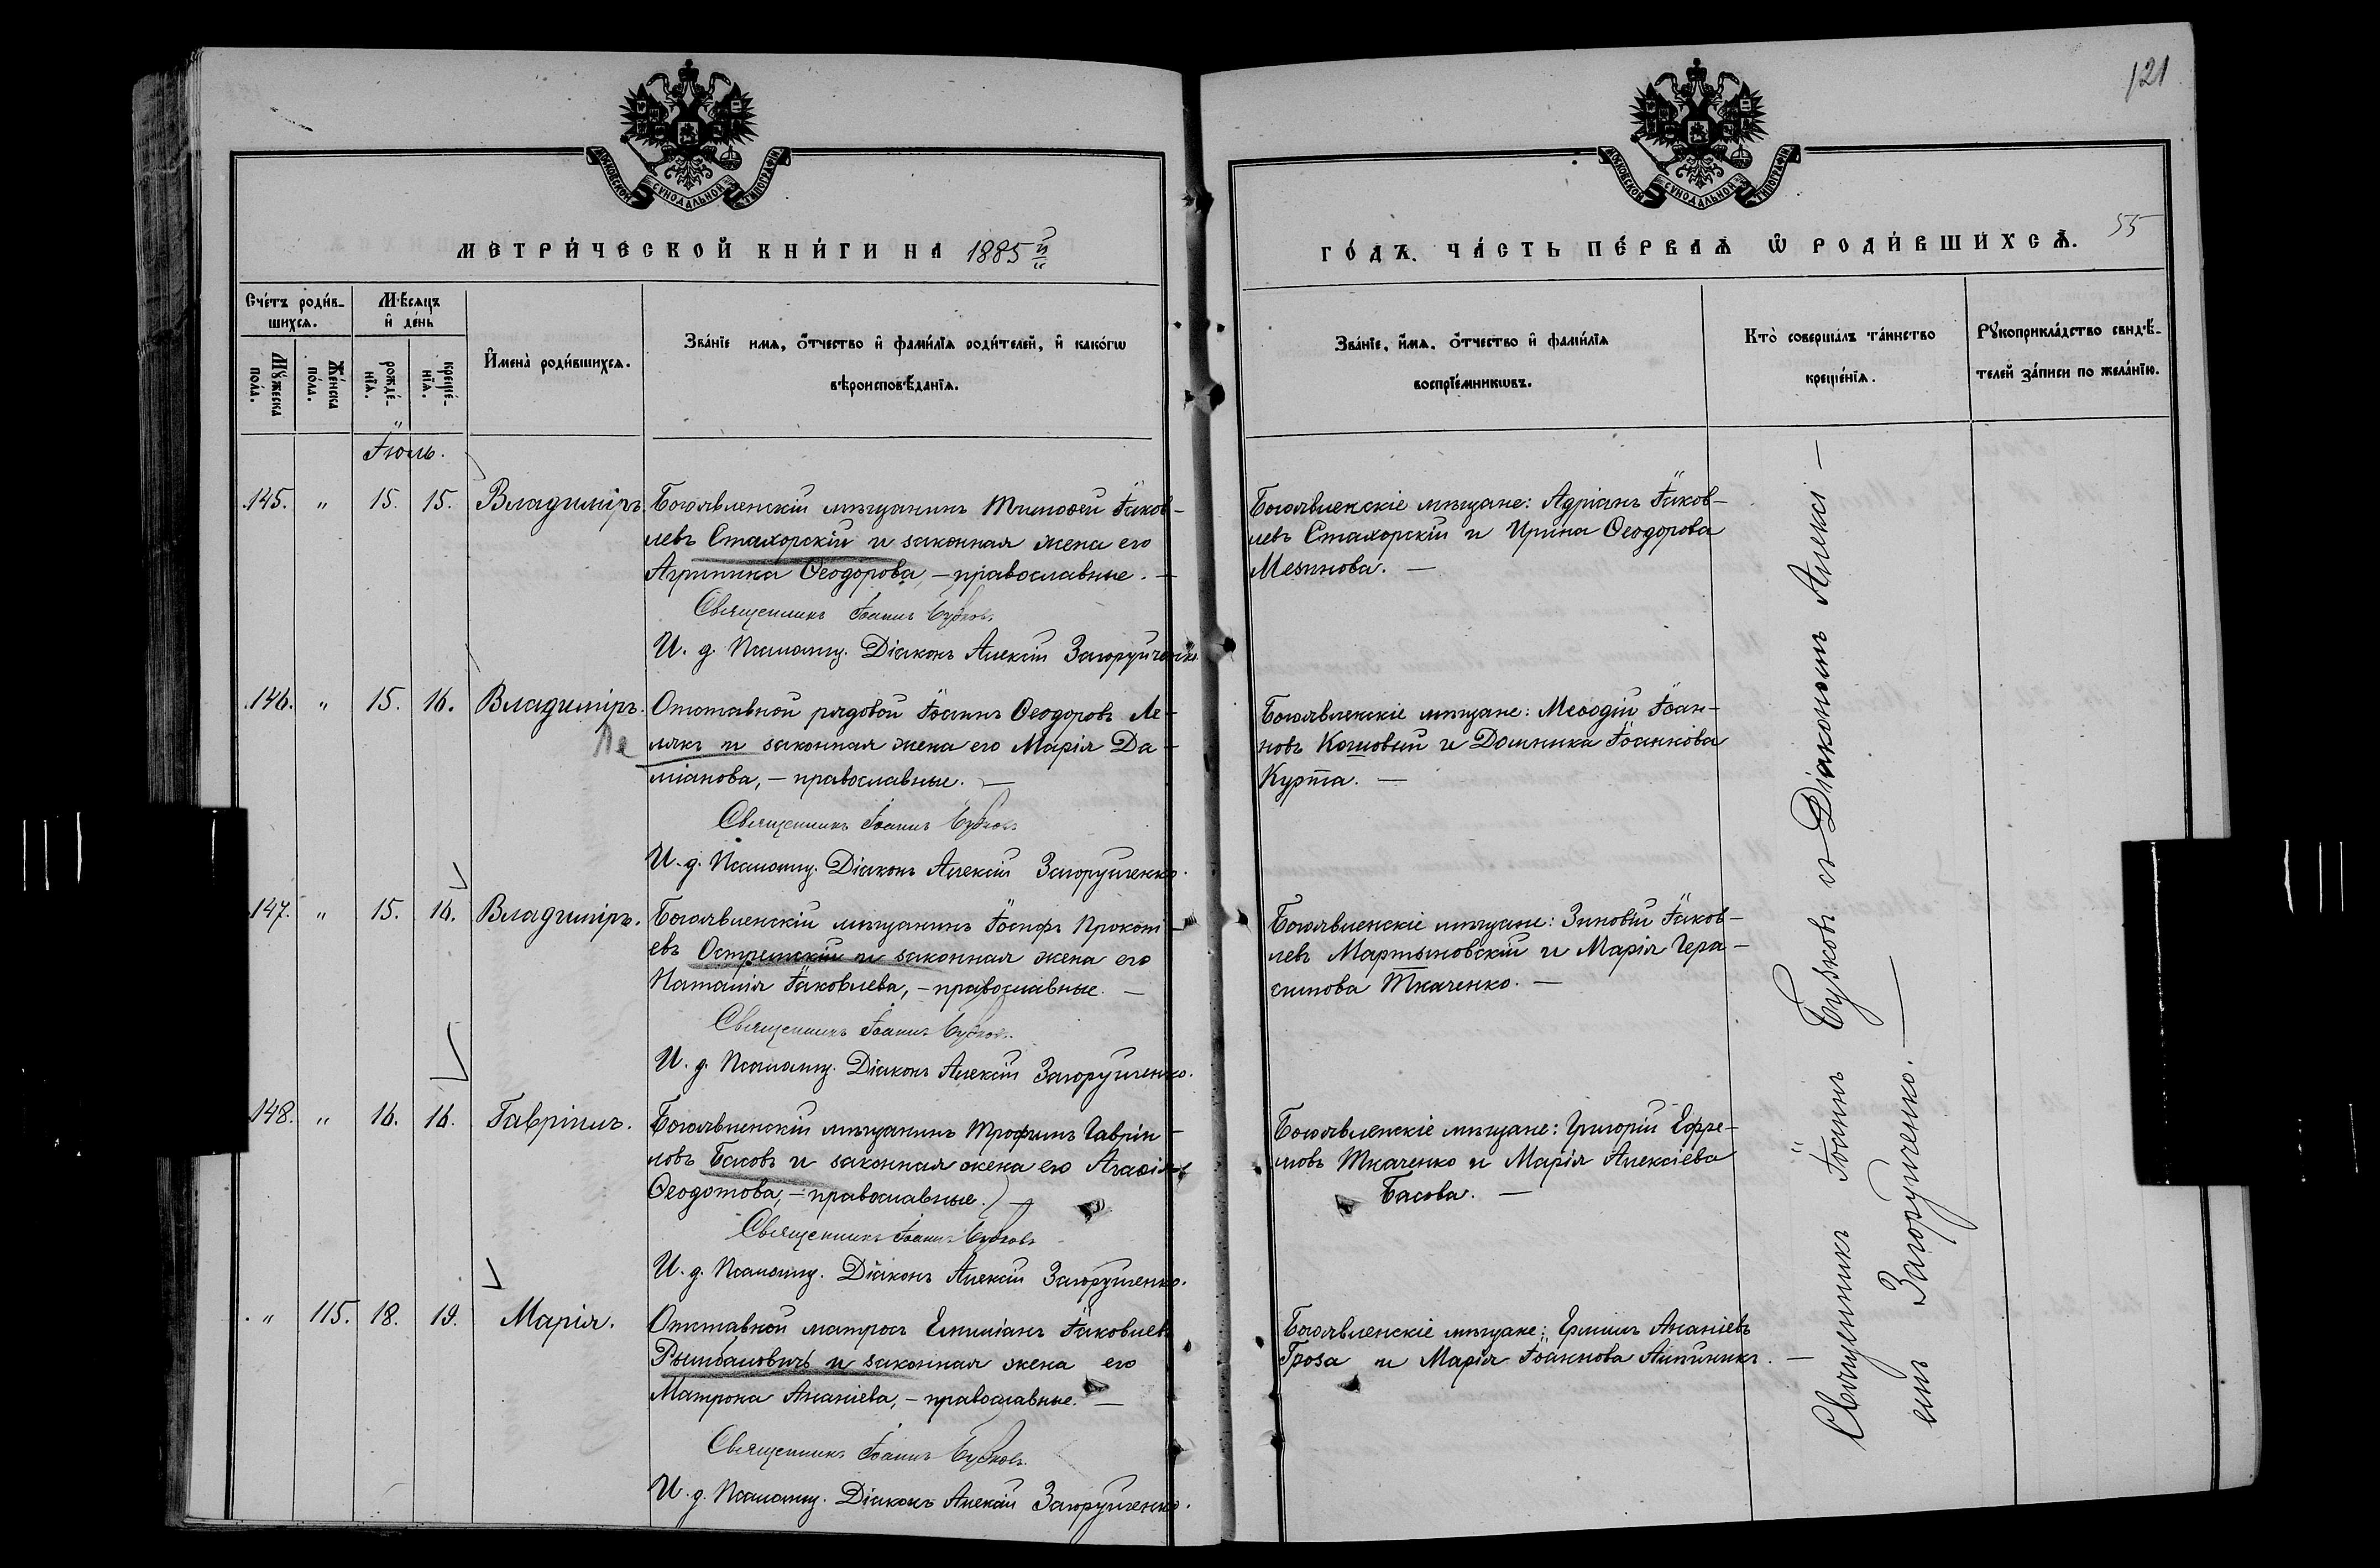 121
МОСКОВСКОЙ СУНОДАЛЬНОЙ ТИПОГРАФІИ
МОСКОВСКОЙ СУНОДАЛЬНОЙ ТИПОГРАФІИ
МЕТРИ́ЧЕСКОЙ КНИ́ГИ НА 1885й
ГО́ДЪ. ЧА́СТЬ ПЕ́РВАѦ Ѡ҆ РОДИ́ВШИХСѦ. 55
Сче́тъ роди́в-
шихсѧ.
Мꙋ́жеска
по́ла.
Же́нска
по́ла.
Мѣ́сяцъ
и҆ де́нь
рожде́-
нїѧ.
креще́-
нїѧ.
И҆мена̀ роди́вшихсѧ.
Зва́нїе имѧ, ѻ҆́тчество и҆ фами́лїѧ роди́телей, и҆ како́гѡ
вѣроисповѣ́данїѧ.
Зва́нїе, и҆́мѧ, ѻ҆́тчество и҆ фами́лїѧ
воспрїе́мникѡвъ.
Кто̀ соверша́лъ та́инство
креще́нїѧ.
Рꙋкоприкла́дство свидѣ́-
телей за́писи по жела́нїю.
Іюль.
145. " 15. 15. Владиміръ.
Богоявленскій мѣщанинъ Тимоѳей Іаков-
левъ Стахорскій и законная жена его
Агриппина Ѳеодорова, - православные. -
Священникъ Іоаннъ Бузковъ
И. д. Псаломщ. Діаконъ Алексій Загоруйченко.
Богоявленскіе мѣщане: Адріанъ Іаков-
левъ Стахорскій и Ирина Ѳеодорова
Мезинова. -
146. " 15. 16. Владиміръ.
Отставной рядовой Іоаннъ Ѳеодоровъ Ле-
лякъ и законная жена его Марія Да-
міанова, - православные. -
Священникъ Іоаннъ Бузковъ
И. д. Псаломщ. Діаконъ Алексій Загоруйченко.
Богоявленскіе мѣщане: Меѳодій Іоан-
новъ Кошовый и Домника Іоаннова
Курта. -
147. " 15. 16. Владиміръ.
Богоявленскій мѣщанинъ Іосифъ Прокопі-
евъ и законная жена его
Наталія Іаковлева, - православные. -
Священникъ Іоаннъ Бузковъ.
И. д. Псаломщ. Діаконъ Алексій Загоруйченко.
Богоявленскіе мѣщане: Зиновій Іаков-
левъ Мартыновскій и Марія Гера-
симова Ткаченко. -
148. " 16. 16. Гавріилъ.
Богоявленскій мѣщанинъ Трофимъ Гавріи-
ловъ Басовъ и законная жена его Агаѳія
Ѳеодотова, - православные. -
Священникъ Іоаннъ Бузковъ
И. д. Псаломщ. Діаконъ Алексій Загоруйченко.
Богоявленскіе мѣщане: Григорій Ефре-
мовъ Ткаченко и Марія Алексіева
Басова. -
" 115. 18. 19. Марія.
Отставной матросъ Емиліанъ Іаковлевъ
и законная жена его
Матрона Ананіева, - православные. -
Священникъ Іоаннъ Бузковъ.
И. д. Псаломщ. Діаконъ Алексій Загоруйченко.
Богоявленскіе мѣщане: Ермилъ Ананіевъ
Гроза и Марія Іоаннова. -
Священникъ Іоаннъ Бузковъ съ Діакономъ Алексі-
емъ Загоруйченко. -